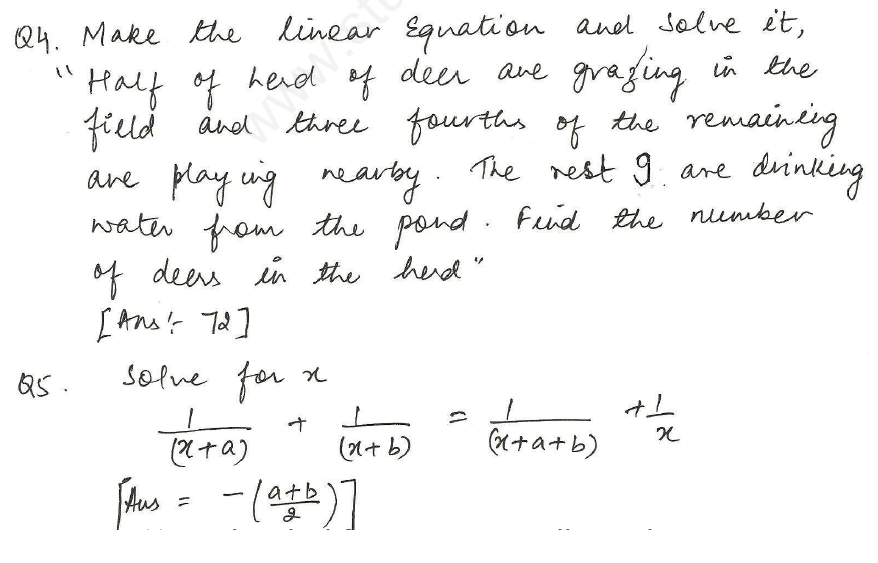 Q4. Make the linear Equation and solve it,
"Half of herd of deer are grazing in the
field and three fourths of the remaining
are playing nearby. The rest 9 are drinking
water from the pond. Find the number
of deers in the herd"
[Ans :- 72]
Q5. Solve for x
1/(x+a) + 1/(x+b) = 1/(x+a+b) + 1/x
[Ans = -(a+b/2)]